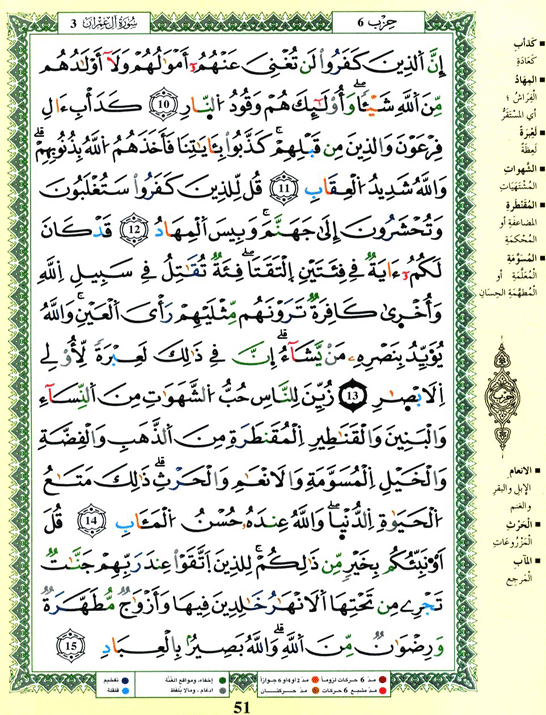 حِزْب 6
سُورَةُ آلِ عِمْرَانَ 3
إِنَّ اَ۬لذِينَ كَفَرُواْ لَن تُغْنِيَ عَنْهُمُۥٓ أَمْوَٰلُهُمْ وَلَآ أَوْلَٰدُهُم
مِّنَ اَ۬للَّهِ شَيْـٔاٗ وَأُوْلَٰٓئِكَ هُمْ وَقُودُ اُ۬لنّ۪ارِ 10 كَدَأْبِ ءَالِ
فِرْعَوْنَ وَالذِينَ مِن قَبْلِهِمْ كَذَّبُواْ بِـَٔايَٰتِنَا فَأَخَذَهُمُ اُ۬للَّهُ بِذُنُوبِهِمْ
وَاللَّهُ شَدِيدُ اُ۬لْعِقَابِ 11 قُل لِّلذِينَ كَفَرُواْ سَتُغْلَبُونَ
وَتُحْشَرُونَ إِلَىٰ جَهَنَّمَ وَبِيسَ اَ۬لْمِهَادُ 12 قَدْ كَانَ
لَكُمُۥٓ ءَايَةٞ فِے فِئَتَيْنِ اِ۪لْتَقَتَا فِئَةٞ تُقَٰتِلُ فِے سَبِيلِ اِ۬للَّهِ
وَأُخْر۪ىٰ كَافِرَةٞ تَرَوْنَهُم مِّثْلَيْهِمْ رَأْيَ اَ۬لْعَيْنِ وَاللَّهُ
يُؤَيِّدُ بِنَصْرِهِۦ مَنْ يَّشَآءُ إِنَّ فِے ذَٰلِكَ لَعِبْرَةٗ لِّأُوْلِے
اِ۬لَابْصٰ۪رِ 13 زُيِّنَ لِلنَّاسِ حُبُّ اُ۬لشَّهَوَٰتِ مِنَ اَ۬لنِّسَآءِ
وَالْبَنِينَ وَالْقَنَٰطِيرِ اِ۬لْمُقَنطَرَةِ مِنَ اَ۬لذَّهَبِ وَالْفِضَّةِ
وَالْخَيْلِ اِ۬لْمُسَوَّمَةِ وَالَانْعَٰمِ وَالْحَرْثِ ذَٰلِكَ مَتَٰعُ
اُ۬لْحَيَوٰةِ اِ۬لدُّنْيَا وَاللَّهُ عِندَهُۥ حُسْنُ اُ۬لْمَـَٔابِ 14 قُلَ
اَوُ۟نَبِّئُكُم بِخَيْرٖ مِّن ذَٰلِكُمْ لِلذِينَ اَ۪تَّقَوْاْ عِندَ رَبِّهِمْ جَنَّٰتٞ
تَجْرِے مِن تَحْتِهَا اَ۬لَانْهَٰرُ خَٰلِدِينَ فِيهَا وَأَزْوَٰجٞ مُّطَهَّرَةٞ
وَرِضْوَٰنٞ مِّنَ اَ۬للَّهِ وَاللَّهُ بَصِيرُۢ بِالْعِبَادِ 15
كَدَأْبِ
كَعَادَةِ
المِهَادُ
الفِرَاشُ ؛
أي المُسْتَقَرُّ
لَعِبْرَةً
لَعِظَةً
الشَّهَوَاتِ
المُشْتَهَيَاتِ
المُقَنْطَرَةِ
المضاعفةِ أو
المُحْكَمَةِ
المُسَوَّمَةِ
المُعَلَّمَةِ أو
المُطَهَّمَةِ الحِسَانِ
حزب
الانعامِ
الإبلِ والبقرِ
والغنمِ
الحَرْثِ
المَزْرُوعَاتِ
المآبِ
المَرجِعِ
مدّ 6 حركات لزوماً
مدّ 2 أو 4 أو 6 جوازاً
إخفاء، ومواقع الغُنَّة
تفخيم
مدّ مشبع 6 حركات
مدّ حركتـــان
إدغام، وما لا يُلفَظ
قلقلة
51